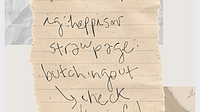 ng: heppusor
strawpage:
butchingout
↳ check